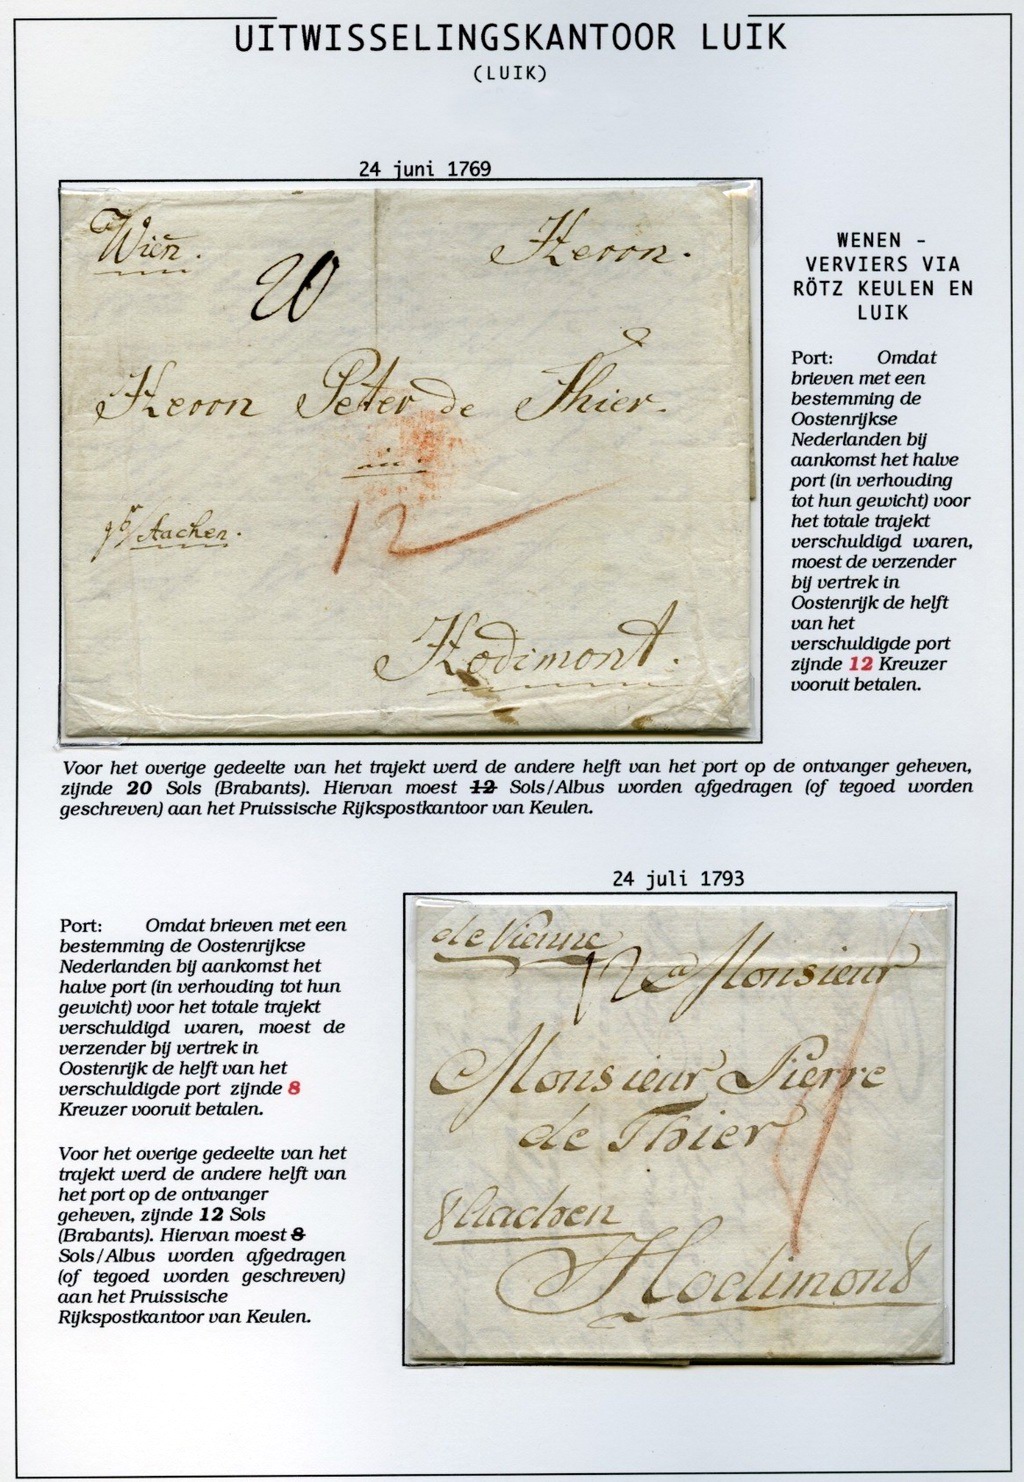 UITWISSELINGSKANTOOR LUIK
(LUIK)
24 juni 1769
Wien.
20
Herrn.
Herrn Peter de Thier.
in.
12
pr Aachen.
Hodimont.
WENEN -
VERVIERS VIA
RÖTZ KEULEN EN
LUIK
Port: Omdat
brieven met een
bestemming de
Oostenrijkse
Nederlanden bij
aankomst het halve
port (in verhouding
tot hun gewicht) voor
het totale trajekt
verschuldigd waren,
moest de verzender
bij vertrek in
Oostenrijk de helft
van het
verschuldigde port
zijnde 12 Kreuzer
vooruit betalen.
Voor het overige gedeelte van het trajekt werd de andere helft van het port op de ontvanger geheven,
zijnde 20 Sols (Brabants). Hiervan moest 12 Sols/Albus worden afgedragen (of tegoed worden
geschreven) aan het Pruissische Rijkspostkantoor van Keulen.
24 juli 1793
Port: Omdat brieven met een
bestemming de Oostenrijkse
Nederlanden bij aankomst het
halve port (in verhouding tot hun
gewicht) voor het totale trajekt
verschuldigd waren, moest de
verzender bij vertrek in
Oostenrijk de helft van het
verschuldigde port zijnde 8
Kreuzer vooruit betalen.
Voor het overige gedeelte van het
trajekt werd de andere helft van
het port op de ontvanger
geheven, zijnde 12 Sols
(Brabants). Hiervan moest 8
Sols/Albus worden afgedragen
(of tegoed worden geschreven)
aan het Pruissische
Rijkspostkantoor van Keulen.
de Vienne
12 a Monsieur
Monsieur Pierre
de Thier
Aachen
Hodimont